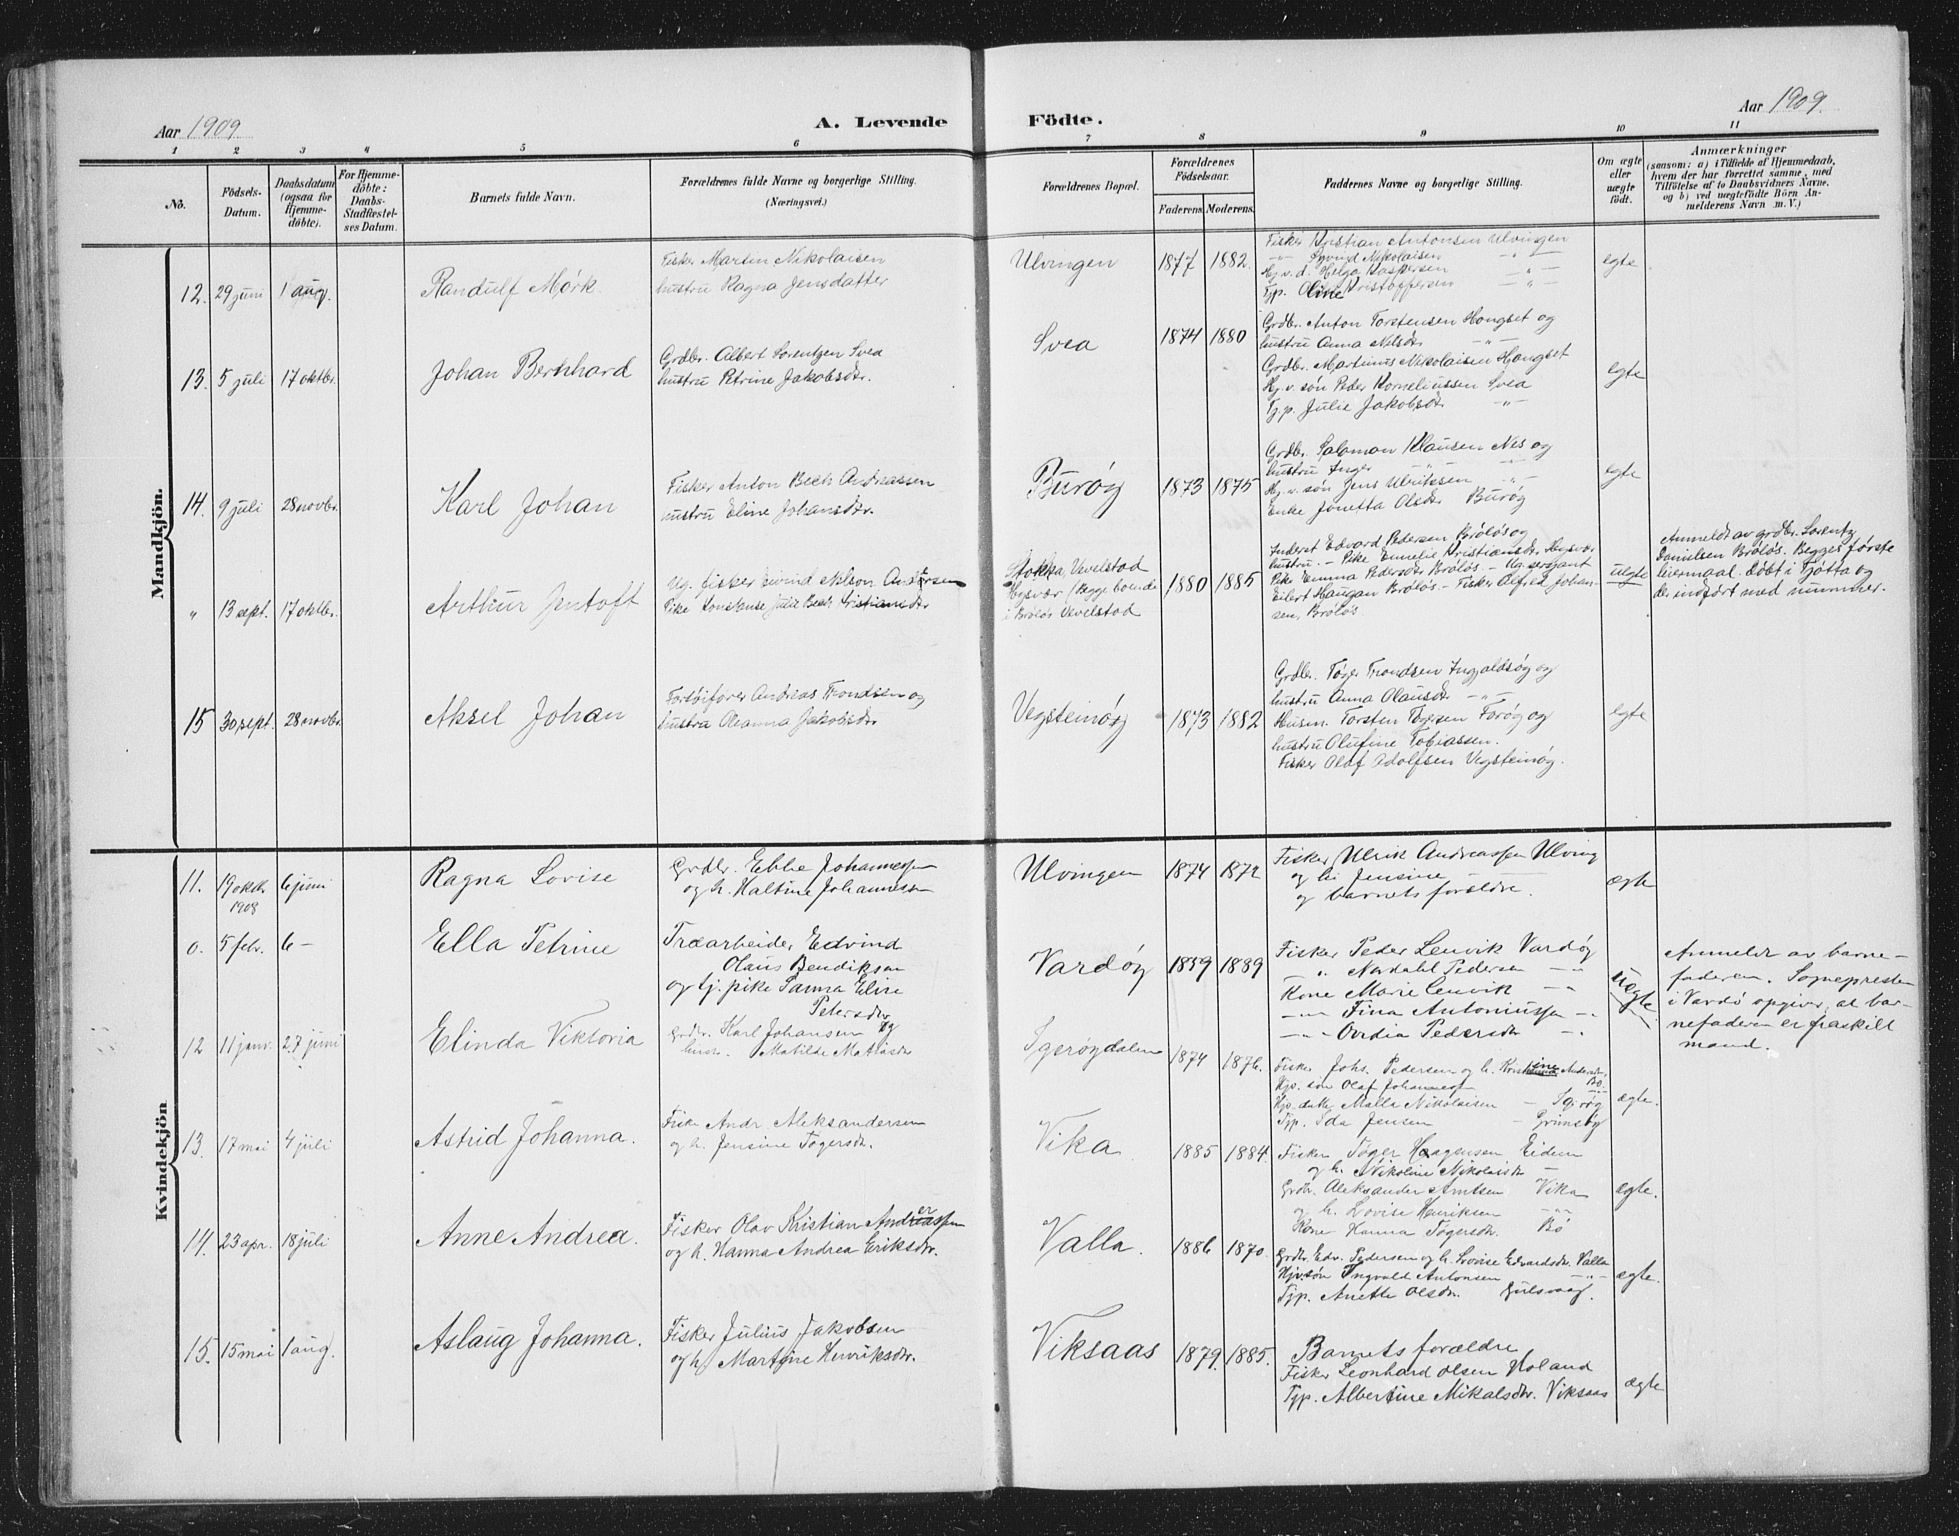 Aar 1909
A. Levende
Födte.
Aar 1909
1 2 3 4 5 6 7 8 9 10 11
No.
Födsels-
Datum.
Daabsdatum
(ogsaa for
Hjemme-
döbte).
For Hjemme-
döbte:
Daabs-
Stadfæstel-
ses Datum.
Barnets fulde Navn.
Forældrenes fulde Navne og borgerlige Stilling.
(Næringsvei.)
Forældrenes Bopæl.
Forældrenes
Födselsaar.
Faderens.
Moderens.
Faddernes Navne og borgerlige Stilling.
Om ægte
eller
uægte
födt.
Anmærkninger
(saasom: a) i Tilfælde af Hjemmedaab,
hvem der har forrettet samme, med
Tilföielse af to Daabsvidners Navne,
og b) ved uægtefödte Börn An-
melderens Navn m. V.)
Mandkjön.
12. 29 juni 1 aug. Randulf Mørk.
Fisker Martin Nikolaisen
hustru Ragna Jensdatter
Ulvingen 1877 1882
Fisker Kristian Antonsen Ulvingen
-"- Øyvind Nikolaisen -"-
Hj.v.d. Helga Kaspersen -"-
Tjp. Oline Kristoffersen -"-
egte
13. 5 juli 17 oktbr. Johan Bernhard
Grdbr. Albert Lorentzen Svea
hustru Petrine Jakobsdr.
Svea 1874 1880
Grdbr. Anton Torstensen Hongset og
hustru Anna Nilsdr. -"-
Grdbr. Martinus Nikolaisen Hongset
Hj.v. søn Peder Korneliussen Svea
Tjp. Julie Jakobsdr. -"-
egte
14. 9 juli 28 novbr. Karl Johan
Fisker Anton Bech Andreassen
hustru Eline Johansdr.
Burøy 1873 1875
Grdbr. Salomon Klausen Nes og
hustru Inger -"-
Hj.v. søn Jens Ulriksen -"-
Enke Jonetta Olsdr. Burøy
egte
" 13 sept. 17 oktbr. Arthur Jentoft
Ug. fisker Eivind Nilson Andersen
Pike Konstanse Julie Bech Kristiansdr
Stokka, Vevelstad
Hysvær (Begge boende
i Brøløs Vevelstad
1880 1885
Inderst Edvard Pedersen Brøløs og
hustru. - Pike Emmelie Kristiansdr. Hysvær
Pike Emma Pedersdr. Brøløs - Ug. sergant
Eilert Haugan Brøløs - Fisker Alfred Johan-
sen, Brøløs
uegte
Anmeldt av grdbr. Lorentz
Danielsen Brøløs. Begges første
leiermaal. Døbt i Tjøtta og
der indført med nummer.
15 30 sept. 28 novbr. Aksel Johan
Andreas Trondsen og
hustru Oleanna Jakobsdr
Vegsteinøy 1873 1882
Grdbr. Tøger Trondsen Ingjaldsøy og
hustru Anna Olausdr. -"-
Husm. Torsten Tøgersen Forøy og
hustru Olufine Tobiassen.
Fisker Olaf Adolfsen Vegsteinøy.
egte
Kvindekjön
11. 19 oktbr 6 juni Ragna Lovise
1908
Grdbr. Ebbe Johannessen
og h. Haltine Johannesen
Ulvingen 1874 1872
Fisker Ulrik Andreassen Ulving
og h. Jensine
og barnets forældre.
ægte
0. 5 febr. 6 - Ella Petrine
Træarbeider Edvind
Olaus Bendiksen
og tj. pike Sanna Eline
Petersdr
Vardøy 1889
Fisker Peder Lenvik Vardøy
" Nordahl Pedersen -"-
Kone Marie Lenvik -"-
-"- Fina Antoniussen -"-
-"- Ovidia Pedersdr -"-
uegte
Anmeldt av barne-
faderen. Sognepresten
i Vardø opgiver, at bar-
nefaderen er fraskilt
mand.
12 11 janv. 27 juni Elinda Viktoria
Grdbr. Karl Johansen og
hustr. Matilde Matiasdr
Igerøydalen 1874 1876.
Fisker Johs. Pedersen og h. Andersdr.
Bø
Hjp. søn Olaf Johannesen -"-
Hjp. datter Malla Nikolaisen - Igerøy
Tjp. Ida Jensen - Grimsøy
ægte.
13. 17 mai 4 juli Astrid Johanna.
Fisker Andr. Aleksandersen
og h. Jensine Tøgersdr.
Vika 1885 1884.
Fisker Tøger Haagensen Eidem
og h. Nikoline Nikolaisdr -
Grdbr. Aleksander Arntsen Vika
og h. Lovise Henriksen -"-
Kone Hanna Tøgersdr. Bø
ægte.
14. 23 apr. 18 juli Anne Andrea.
Fisker Olav Kristian Anderssen
og h. Hanna Andrea Eriksdr.
Valla. 1886 1870.
Grdbr. Edv. Pedersen og h. Lovise Edvardsdr. Valla
Hjv. søn Ingvald Antonsen -"-
Tjp. Anette Olsdr. Gulsvaag.
ægte.
15. 15 mai 1 aug. Aslaug Johanna.
Fisker Julius Jakobsen
og h. Martine Henriksdr.
Viksaas 1879. 1885.
Barnets forældre
Fisker Leonhard Olsen Holand
Tjp. Albertine Mikalsdr. Viksaas
ægte